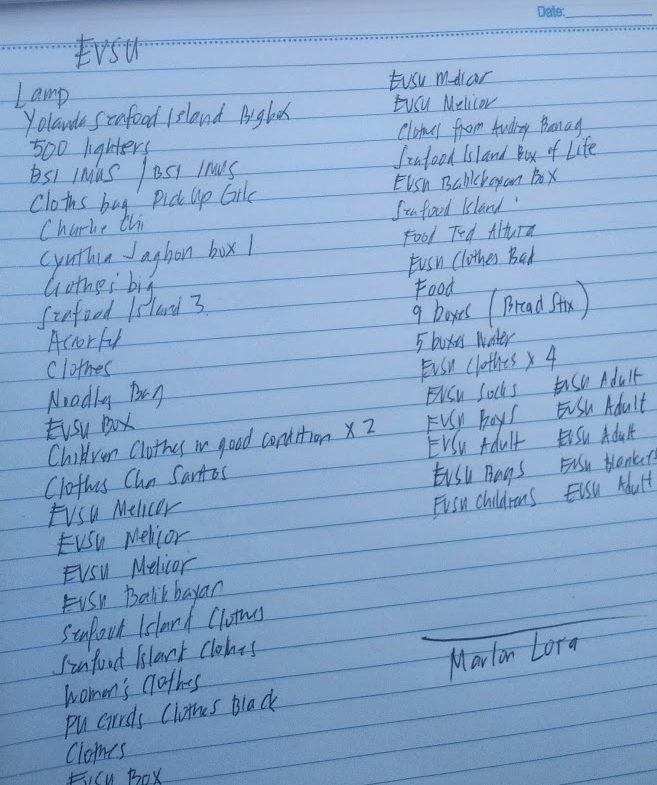 Date:
EVSU
Lamp
Yolanda Seafood Island Bigbox
500 lighters
BSI IMUS / BSI IMUS
Cloths bag Pick Up Gilc
Charlie Chi
Cynthia Jagbon box 1
Clothes big
Seafood Island 3
Assorted
Clothes
Noodles Bag
EVSU Box
Children Clothes in good condition x 2
Clothes Chn Santos
EVSU Melicor
EVSU Melicor
EVSU Melicor
EVSU Balikbayan
Seafood Island Clothes
Seafood Island Clothes
Women's Clothes
PU Clothes Black
Clothes
EVSU Box
EVSU Medicor
EVSU Melicor
Clothes from Audrey Banag
Seafood Island Box of Life
EVSU Balikbayan Box
Seafood Island
Food Ted Altura
EVSU Clothes Bad
Food
9 boxes (Bread Stix)
5 boxes Water
EVSU Clothes x 4
EVSU Socks EVSU Adult
EVSU Boys EVSU Adult
EVSU Adult EVSU Adult
EVSU Bags EVSU blankets
EVSU Childrens EVSU Adult
Marlon Lora